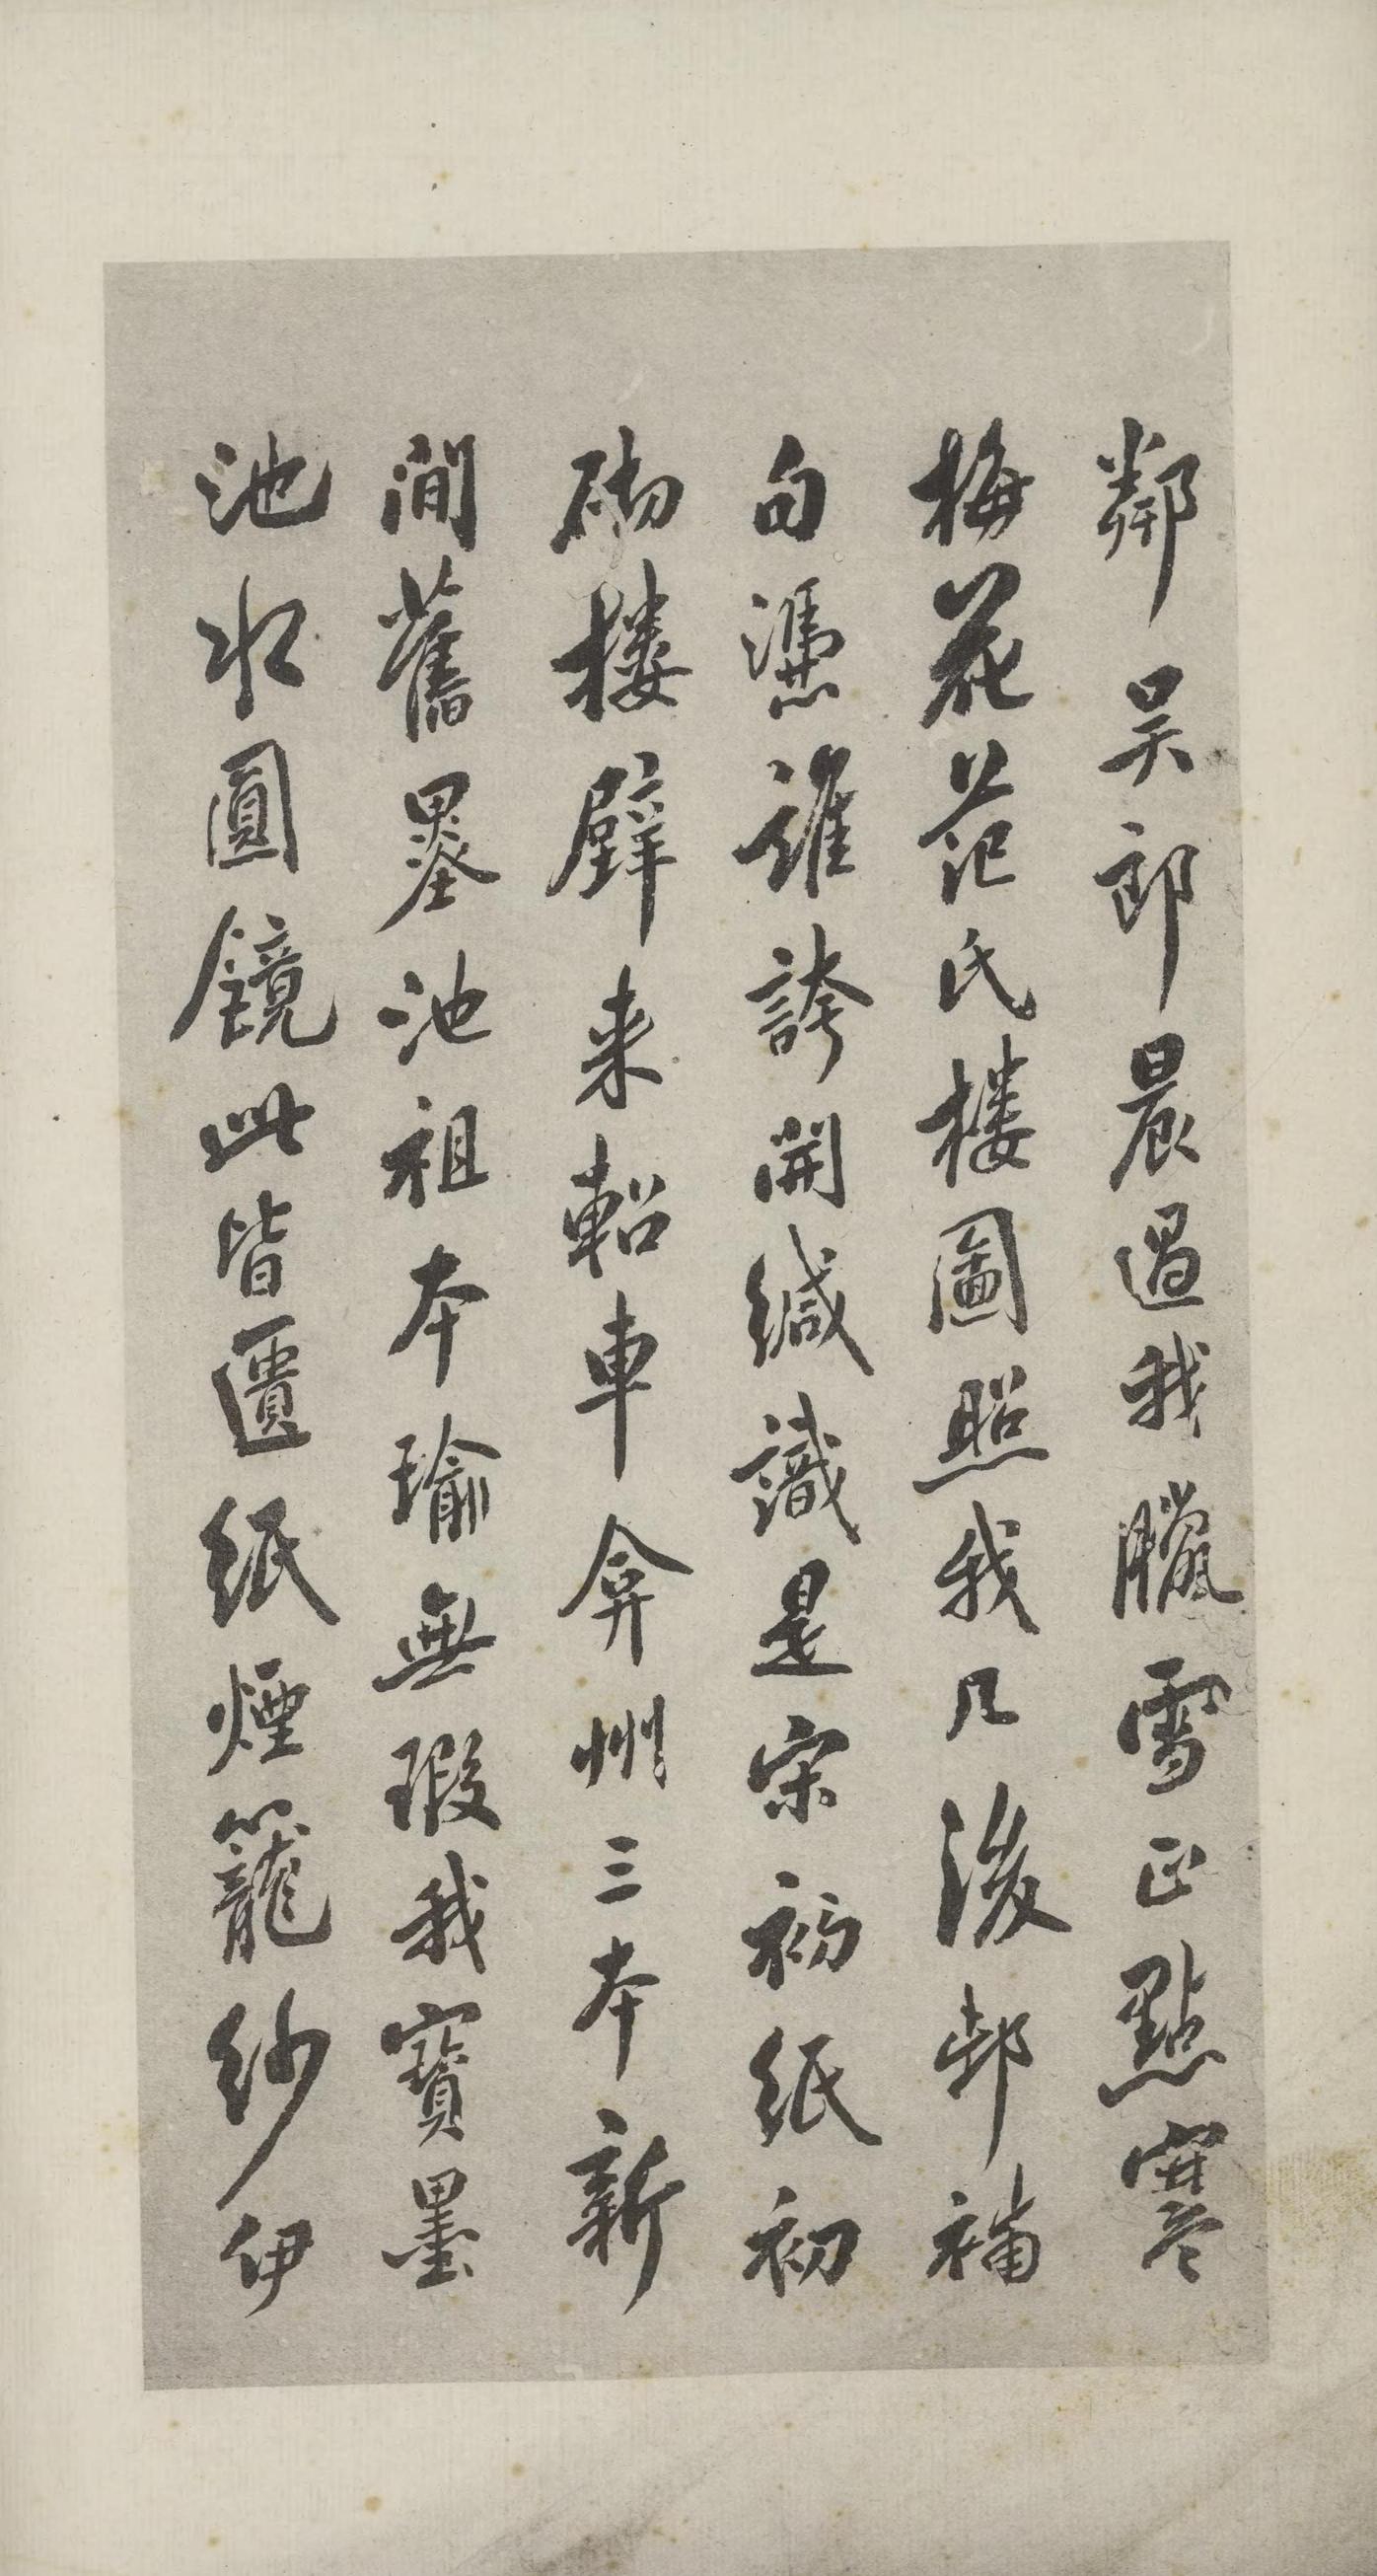 鄰吴郎晨過我臘雪正點寒
梅花范氏樓圖照我几後邨補
句憑誰誇開緘識是宋紙初
樓辟来軺車弇州三本新
間舊墨池祖本瑜無瑕我寶墨
池水圓鏡此皆匱紙煙籠紗伊